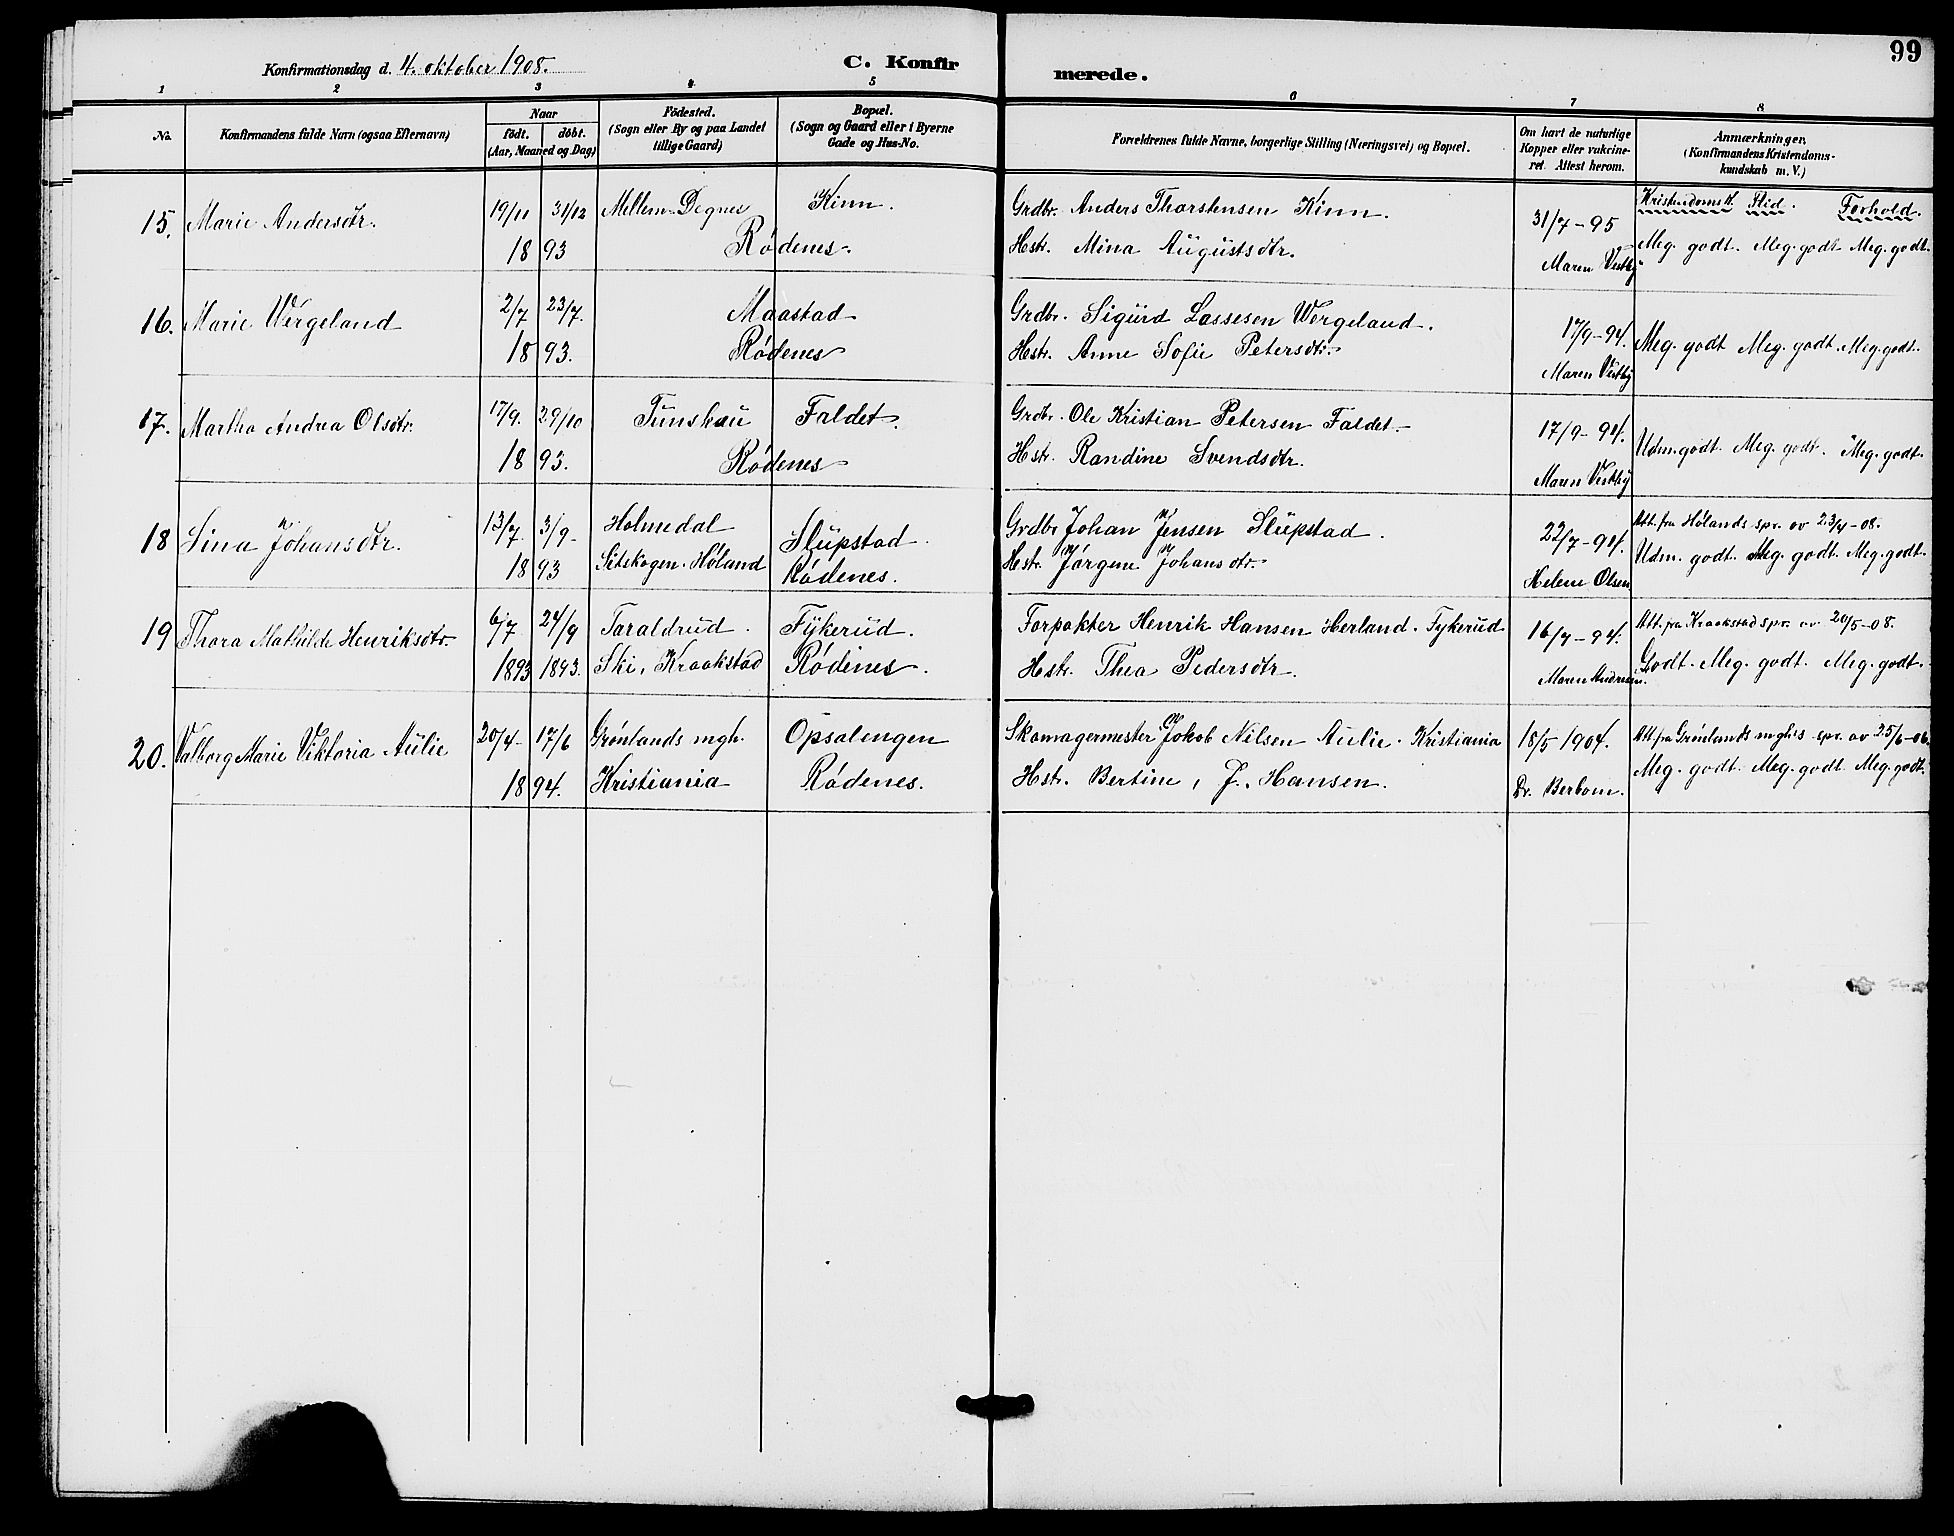 99
Konfirmationsdag d. 4. oktober 1908.
C. Konfirmerede.
1 2 3 4 5 6 7 8
No.
Konfirmandens fulde Navn (ogsaa Efternavn)
Naar
født. døbt.
(Aar, Maaned og Dag)
Födested.
(Sogn eller By og paa Landet
tillige Gaard)
Bopæl.
(Sogn og Gaard eller i Byerne
Gade og Hus-No.
Forældrenes fulde Navne, borgerlige Stilling (Næringsvei) og Bopæl.
Om havt de naturlige
Kopper eller vakcine-
ret. Attest herom.
Anmærkninger,
(Konfirmandens Kristendoms-
kundskab m. V.)
Kristendomsk. Flid. Forhold.
15. Marie Andersdtr. 19/11 31/12 Mellem-Degnes Kinn. Grdbr. Anders Thorstensen Kinn. 31/7-95
18 93 Rødenes. Hstr. Mina Augustsdtr. Maren Vestby Meg. godt. Meg. godt. Meg. godt.
16. Marie Wergeland 2/7 23/7. Maastad Grdbr. Sigurd Lassesen Wergeland. 17/9-94.
18 93. Rødenes Hstr. Anne Sofie Petersdtr. Maren Vestby Meg. godt Meg. godt. Meg. godt.
17. Martha Andrea Olsdtr. 17/9. 29/10 Tunskau Faldet. Grdbr. Ole Kristian Petersen Faldet. 17/9-94.
18 93. Rødenes Hstr. Randine Svendsdtr. Maren Vestby Udm. godt. Meg. godt. Meg. godt.
18 Sina Johansdtr. 13/7. 3/9- Holmedal Slupstad. Grdbr Johan Jensen Slupstad. 22/7-94. Att. fra Hølands spr. av 23/4-08.
18 93 Setskogen. Høland Rødenes. Hstr. Jørgine Johansdtr. Helene Olsen Udm. godt. Meg. godt. Meg. godt.
19 Thora Mathilde Henriksdtr. 6/7 24/9 Taraldrud. Fykerud. Forpakter Henrik Hansen Herland. Fykerud 16/7-94. Att. fra Kraakstad spr. av 20/5-08.
1893 1893. Ski, Kraakstad Rødenes. Hstr. Thea Pedersdtr. Maren Andresen. Godt. Meg. godt. Meg. godt.
20. Valborg Marie Viktoria Aulie 20/4- 17/6 Grønlands mgh. Opsalengen Skomagermester Jakob Nilsen Aulie. Kristiania 18/5 1904. Att. fra Grønlands mghs. spr. av 25/6-06.
18 94. Kristiania Rødenes. Hstr. Bertine, f. Hansen. Dr. Berbom. Meg. godt. Meg. godt. Meg. godt.